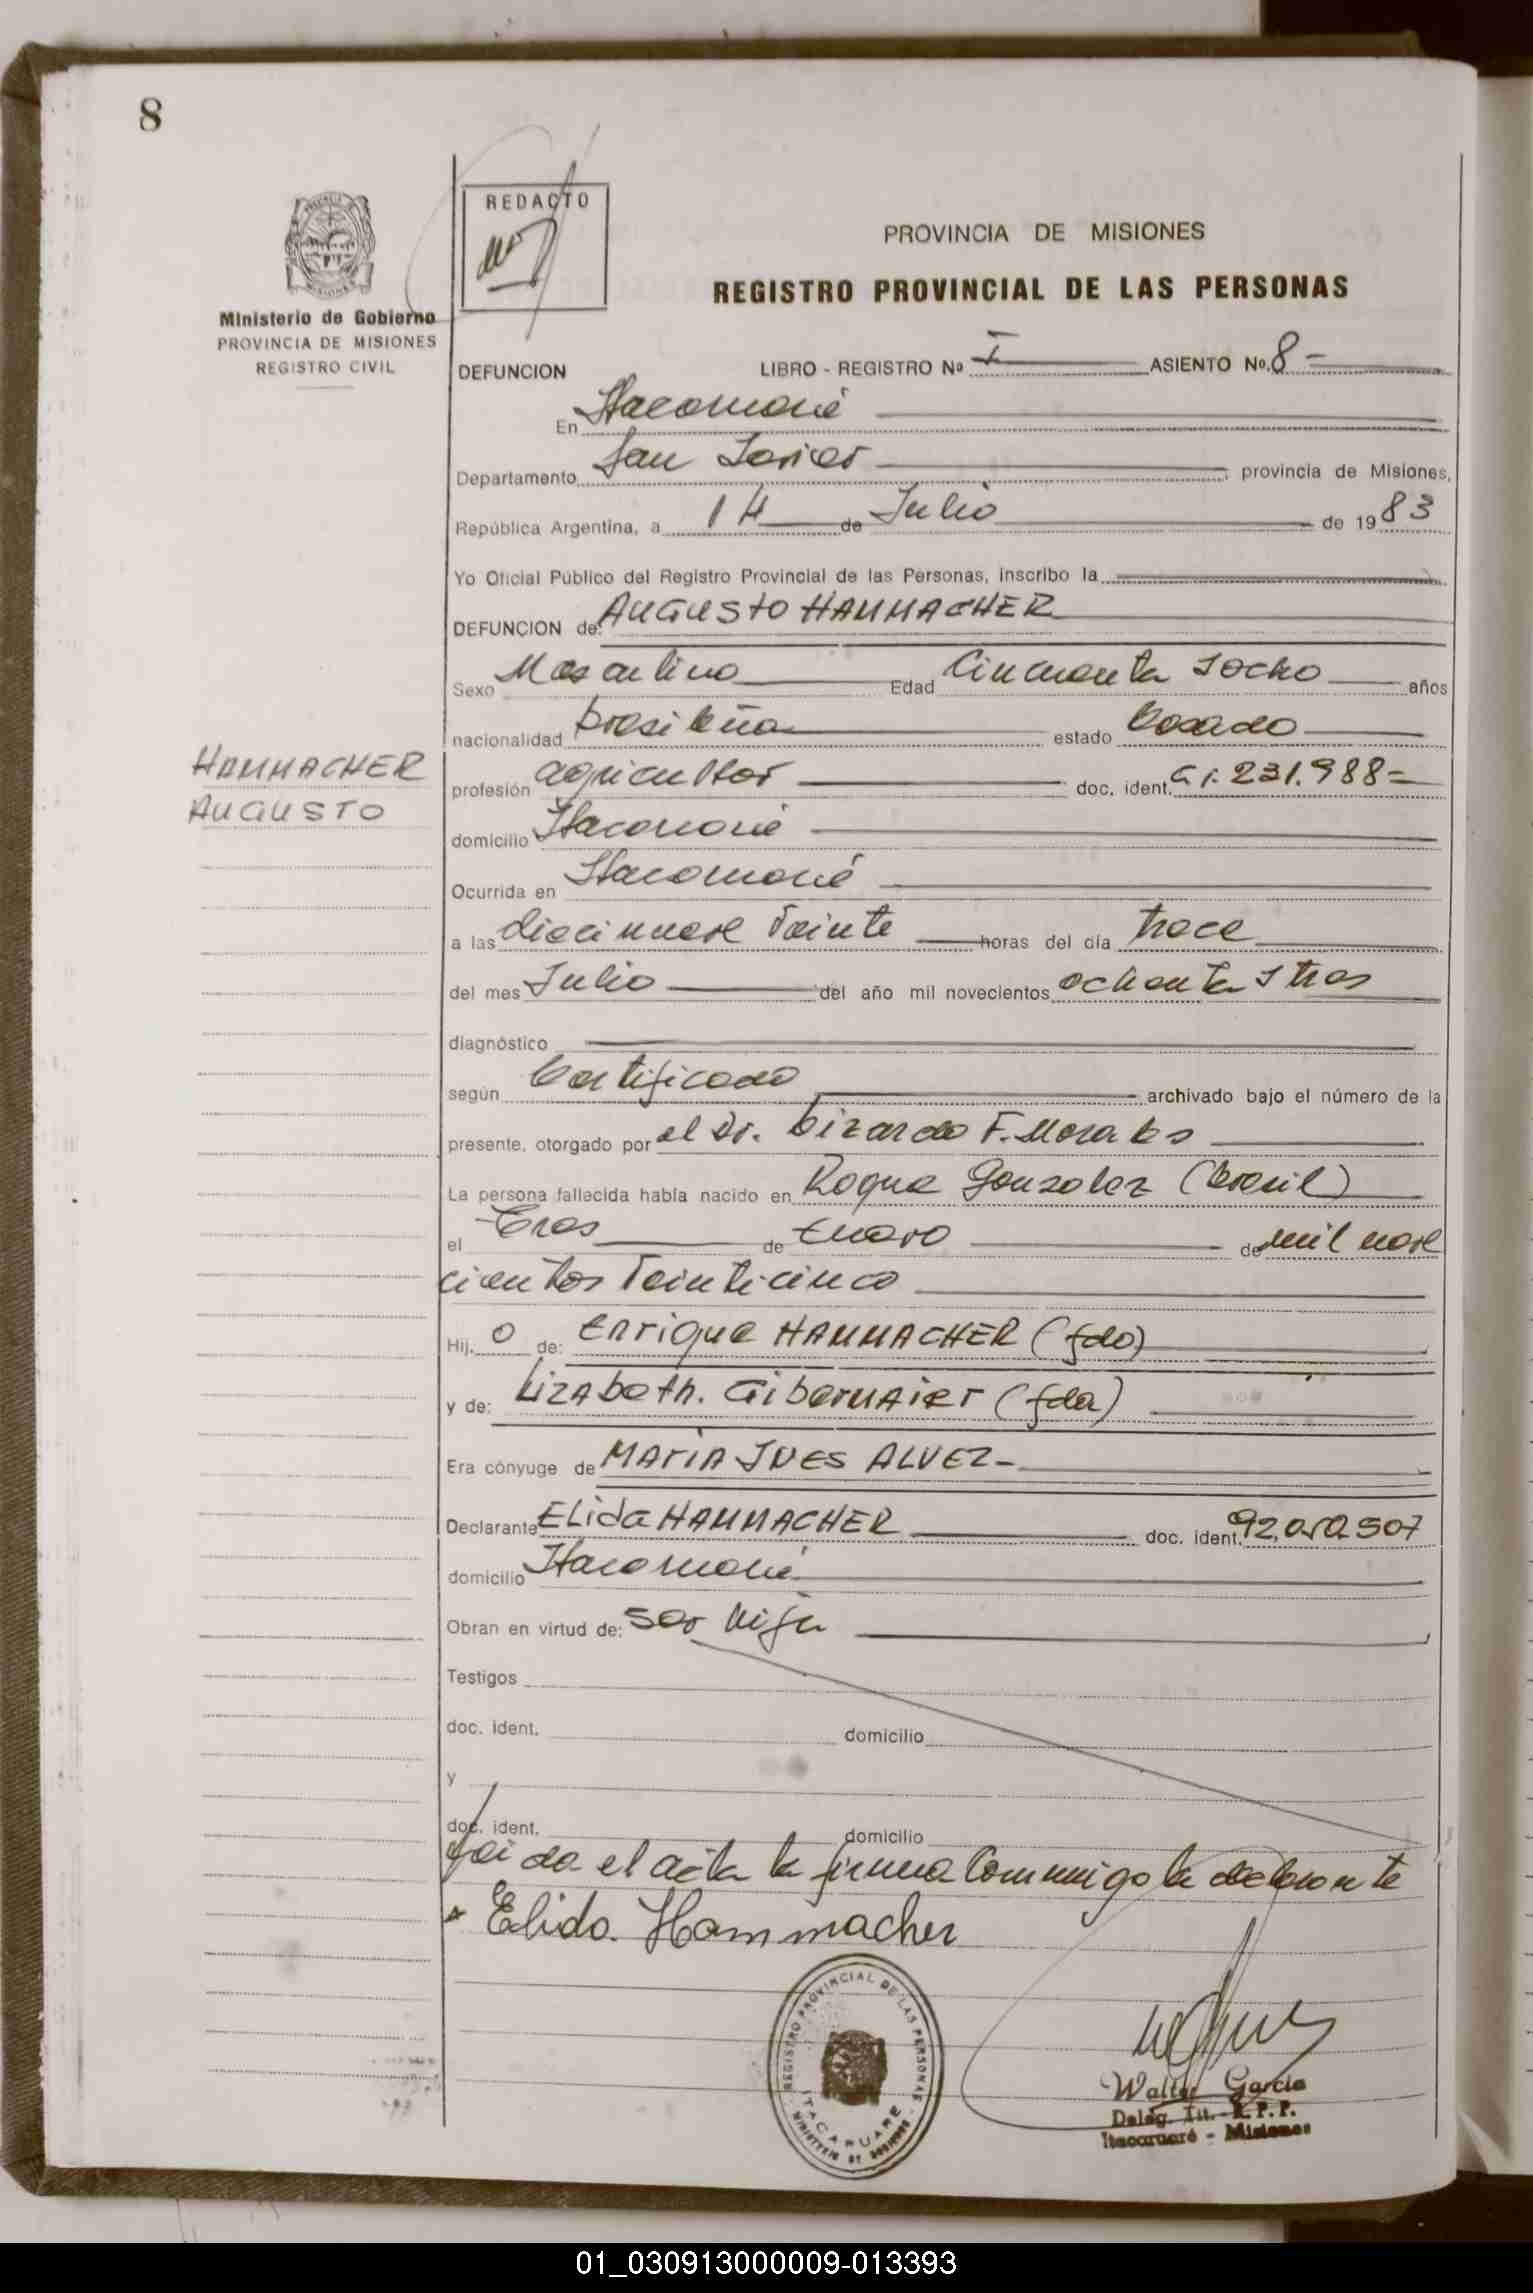 8
REDACTO
PROVINCIA DE MISIONES
REGISTRO PROVINCIAL DE LAS PERSONAS
Ministerio de Gobierno
PROVINCIA DE MISIONES
REGISTRO CIVIL
DEFUNCION LIBRO - REGISTRO Nº I ASIENTO Nº. 8 -
En Itacaruaré
Departamento San Javier, provincia de Misiones,
República Argentina, a 14 de Julio de 1983
Yo Oficial Público del Registro Provincial de las Personas, inscribo la
DEFUNCION de: AUGUSTO HAMMACHER
Sexo Masculino Edad Cincuenta y ocho años
nacionalidad brasileña estado Casado
HAMMACHER
AUGUSTO
profesión agricultor doc. ident. C.I. 231.988-
domicilio Itacaruaré
Ocurrida en Itacaruaré
a las diecinueve veinte horas del día trece
del mes Julio del año mil novecientos ochenta y tres
diagnóstico
según Certificado archivado bajo el número de la
presente, otorgado por el Dr. Lizardo F. Morales
La persona fallecida había nacido en Roque Gonzalez (brasil)
el Tres de Enero de mil nove
cientos veinticinco
Hij. o de: Enrique HAMMACHER (fdo)
y de: Lizabeth. Gibermaier (fda)
Era cónyuge de MARIA INES ALVEZ-
Declarante ELida HAMMACHER doc. ident. 92.050.507
domicilio Itacaruaré
Obran en virtud de: ser hija
Testigos
doc. ident. domicilio
y
doc. ident. domicilio
Leida el acta la firma Conmigo la declarante
Elida. Hammacher
REGISTRO PROVINCIAL DE LAS PERSONAS
ITACARUARE
Walter Garcia
Deleg. Tit. - R.P.P.
Itacaruaré - Misiones
01_030913000009-013393